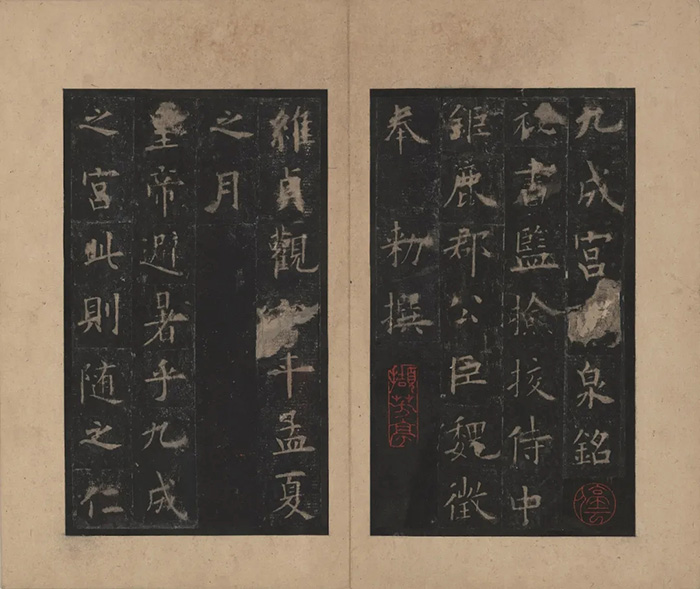 九成宮泉銘
秘書監撿挍侍中
鉅鹿郡公臣魏徵
奉敕撰
維貞觀年孟夏
之月
皇帝避暑乎九成
之宮此則随之仁